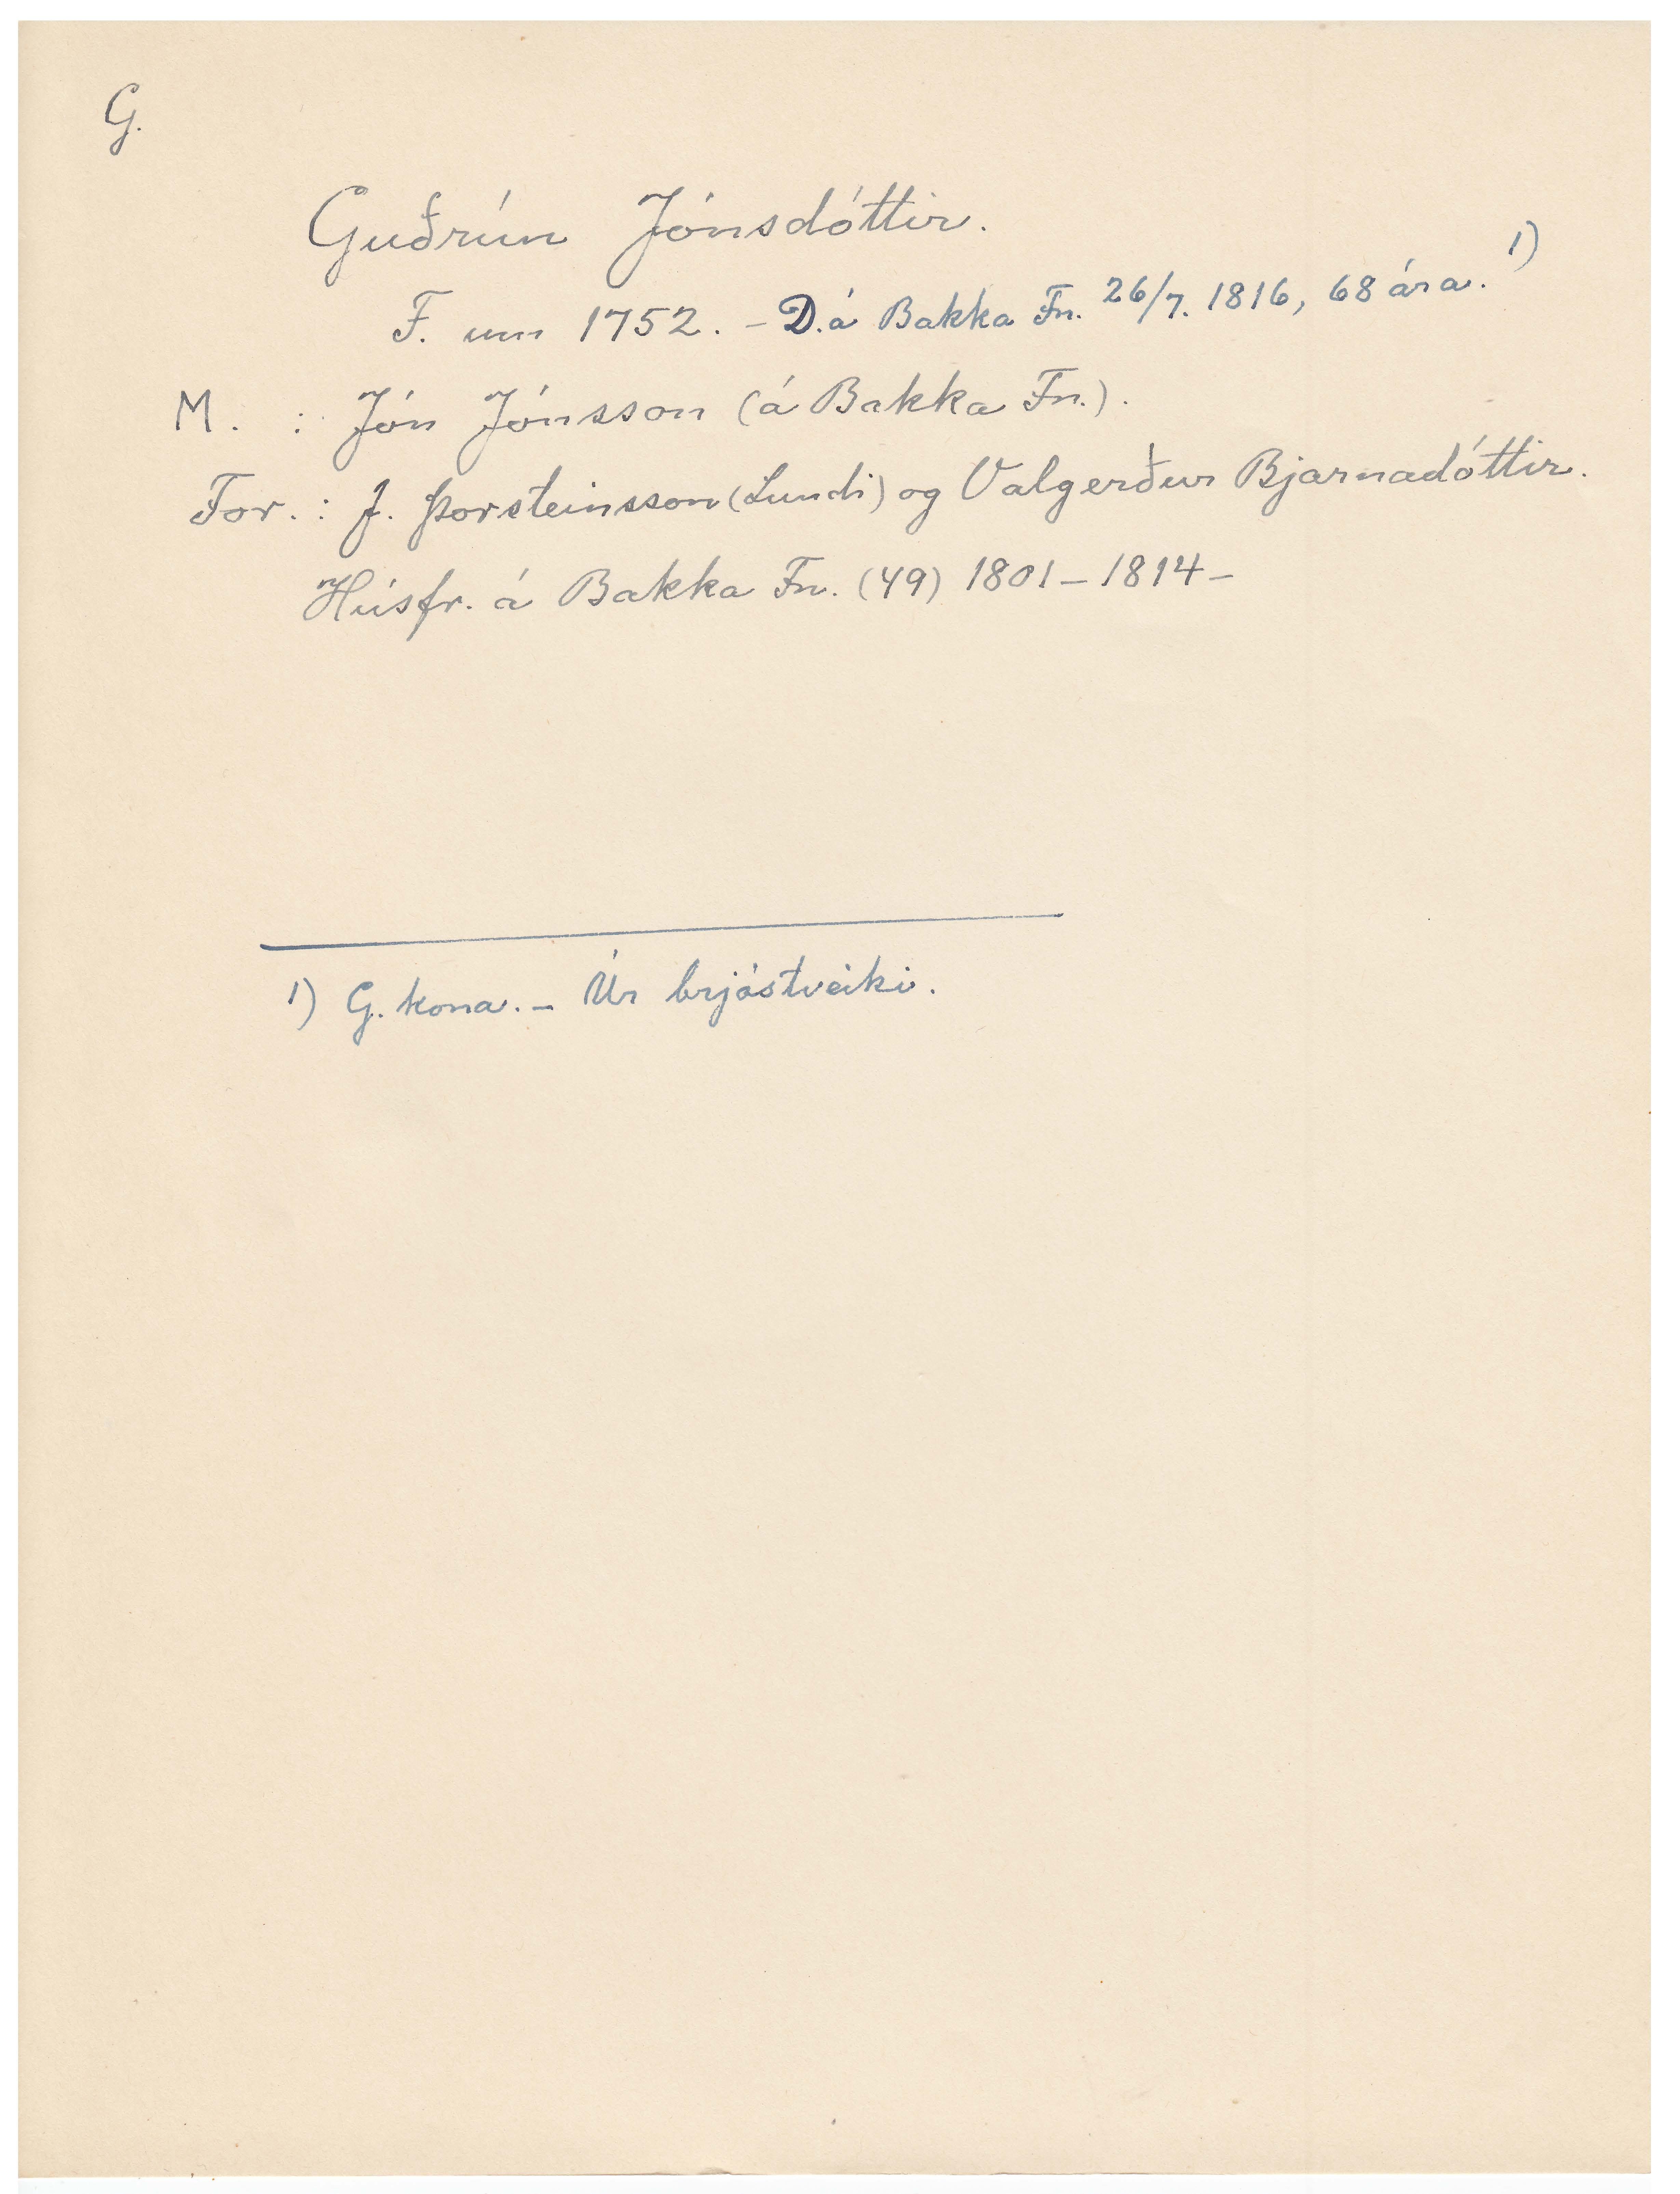 G.
Guðrún Jónsdóttir.
F. um 1752. - D. á Bakka Fn. 26/7. 1816, 68 ára. 1)
M. : Jón Jónsson (á Bakka Fn.).
For. : J. Þorsteinsson (Lundi) og Valgerður Bjarnadóttir.
Húsfr. á Bakka Fn. (49) 1801 - 1814 -
1) G. kona. - Úr brjóstveiki.